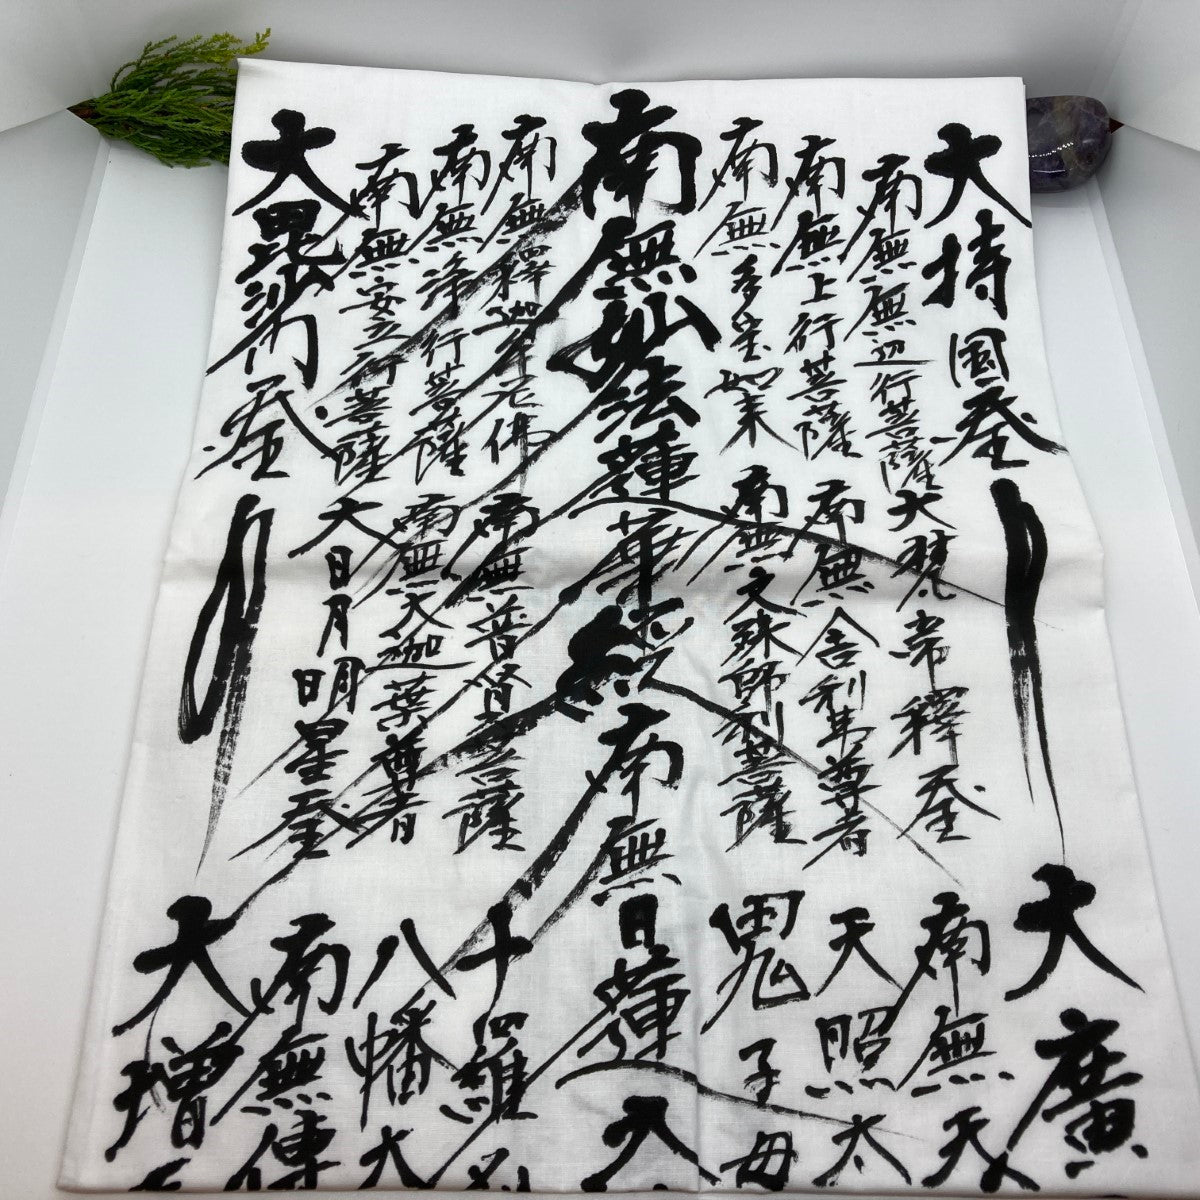 大持国天王
南無無辺行菩薩
南無上行菩薩
南無多宝如来
南無妙法蓮華経
南無日蓮大
南無釋迦牟尼佛
南無浄行菩薩
南無安立行菩薩
大毘沙門天王
大梵帝釋天王
南無舎利弗尊者
南無文殊師利菩薩
南無普賢菩薩
南無大迦葉尊者
大日月明星天王
大廣
南無天
天照太
鬼子母
十羅刹
八幡大
南無傳
大増